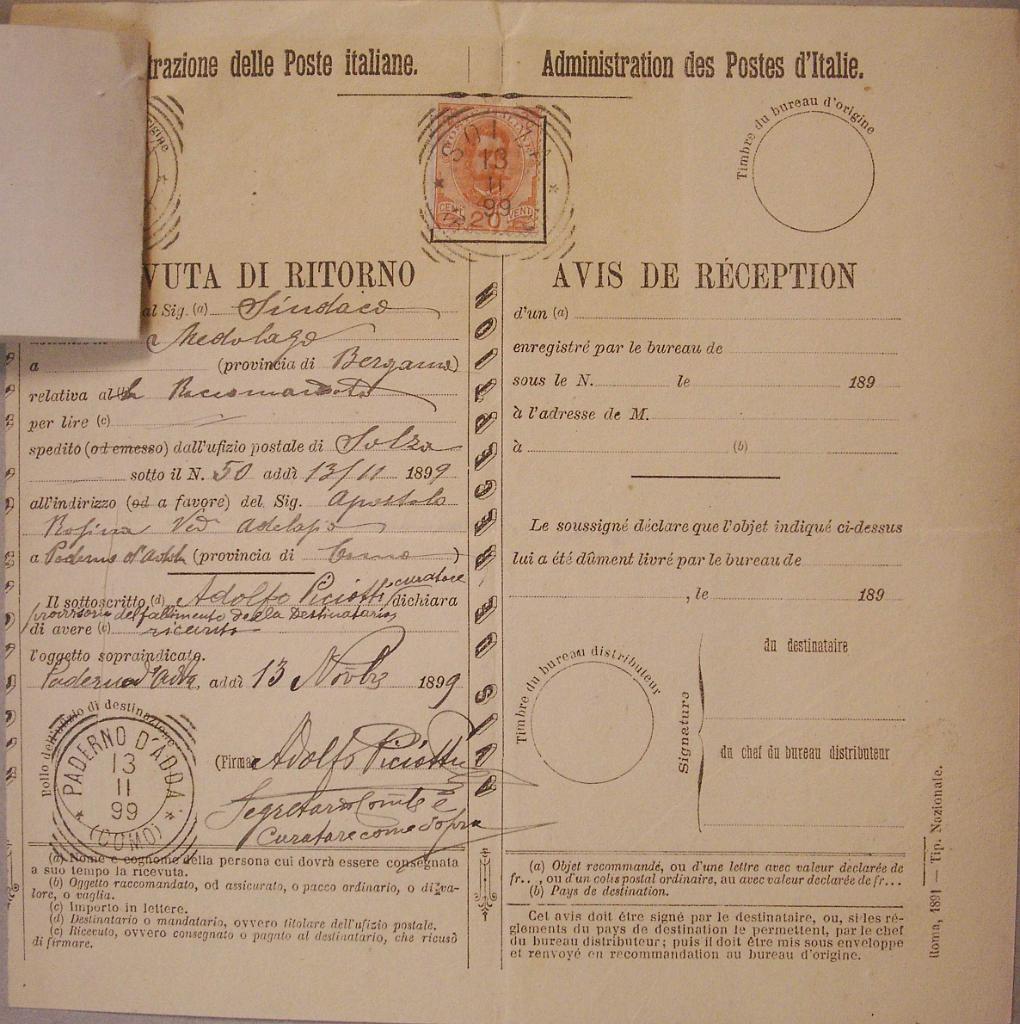 trazione delle Poste italiane.
Administration des Postes d'Italie.
SOLZA
13
11
99
CENT 20 VENTI
Timbre du bureau d'origine
VUTA DI RITORNO
al Sig. (a) Sindaco
Medolago
a (provincia di Bergamo)
relativa alla Raccomandata
per lire (c)
spedito (od emesso) dall'ufizio postale di Solza
sotto il N. 50 addì 13/11 1899
all'indirizzo (od a favore) del Sig. Apostolo
Rosina Ved
a Paderno d'Adda (provincia di Como)
Il sottoscritto (d) Adolfo Piciotti curatore dichiara
provvisorio del fallimento della Destinataria
di avere (e) ricevuto
l'oggetto sopraindicato.
Paderno d'Adda, addì 13 Novbre 1899
Bollo dell'ufizio di destinazione
PADERNO D'ADDA
13
11
99
(COMO)
(Firma) Adolfo Piciotti
Segretario Comle e
Curatore come sopra
(a) Nome e cognome della persona cui dovrà essere consegnata
a suo tempo la ricevuta.
(b) Oggetto raccomandato, od assicurato, o pacco ordinario, o di va-
lore, o vaglia.
(c) Importo in lettere.
(d) Destinatario o mandatario, ovvero titolare dell'ufizio postale.
(e) Ricevuto, ovvero consegnato o pagato al destinatario, che ricusò
di firmare.
AVIS DE RÉCEPTION
d'un (a)
enregistré par le bureau de
sous le N. le 189
à l'adresse de M.
à (b)
Le soussigné déclare que l'objet indiqué ci-dessus
lui a été dûment livré par le bureau de
, le 189
Timbre du bureau distributeur
Signature
du destinataire
du chef du bureau distributeur
(a) Objet recommandé, ou d'une lettre avec valeur déclarée de
fr..., ou d'un colis postal ordinaire, au avec valeur déclarée de fr...
(b) Pays de destination.
Cet avis doit être signé par le destinataire, ou, si les ré-
glements du pays de destination le permettent, par le chef
du bureau distributeur; puis il doit être mis sous enveloppe
et renvoyé en recommandation au bureau d'origine.
Roma, 1891 — Tip. Nazionale.